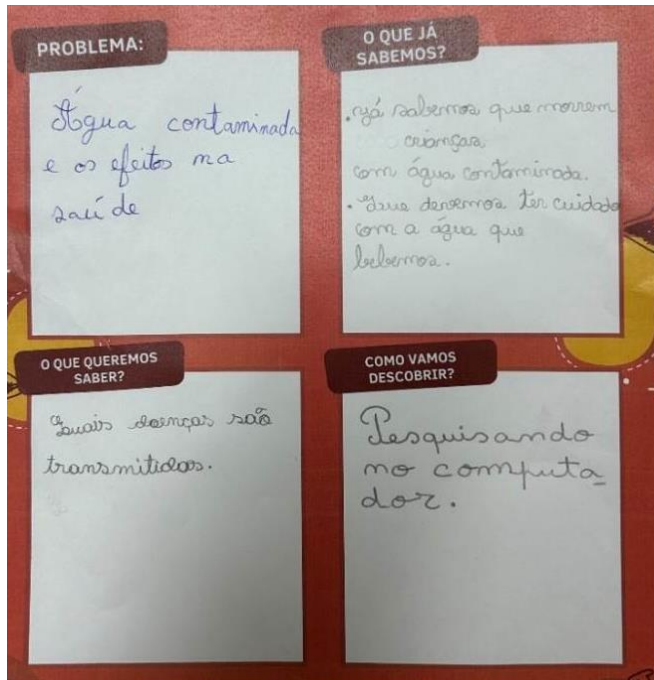 PROBLEMA:
Água contaminada
e os efeitos na
saúde
O QUE JÁ
SABEMOS?
. Já sabemos que morrem
crianças
com água contaminada.
. Que devemos ter cuidado
com a água que
bebemos.
O QUE QUEREMOS
SABER?
Quais doenças são
transmitidas.
COMO VAMOS
DESCOBRIR?
Pesquisando
no computa
dor.